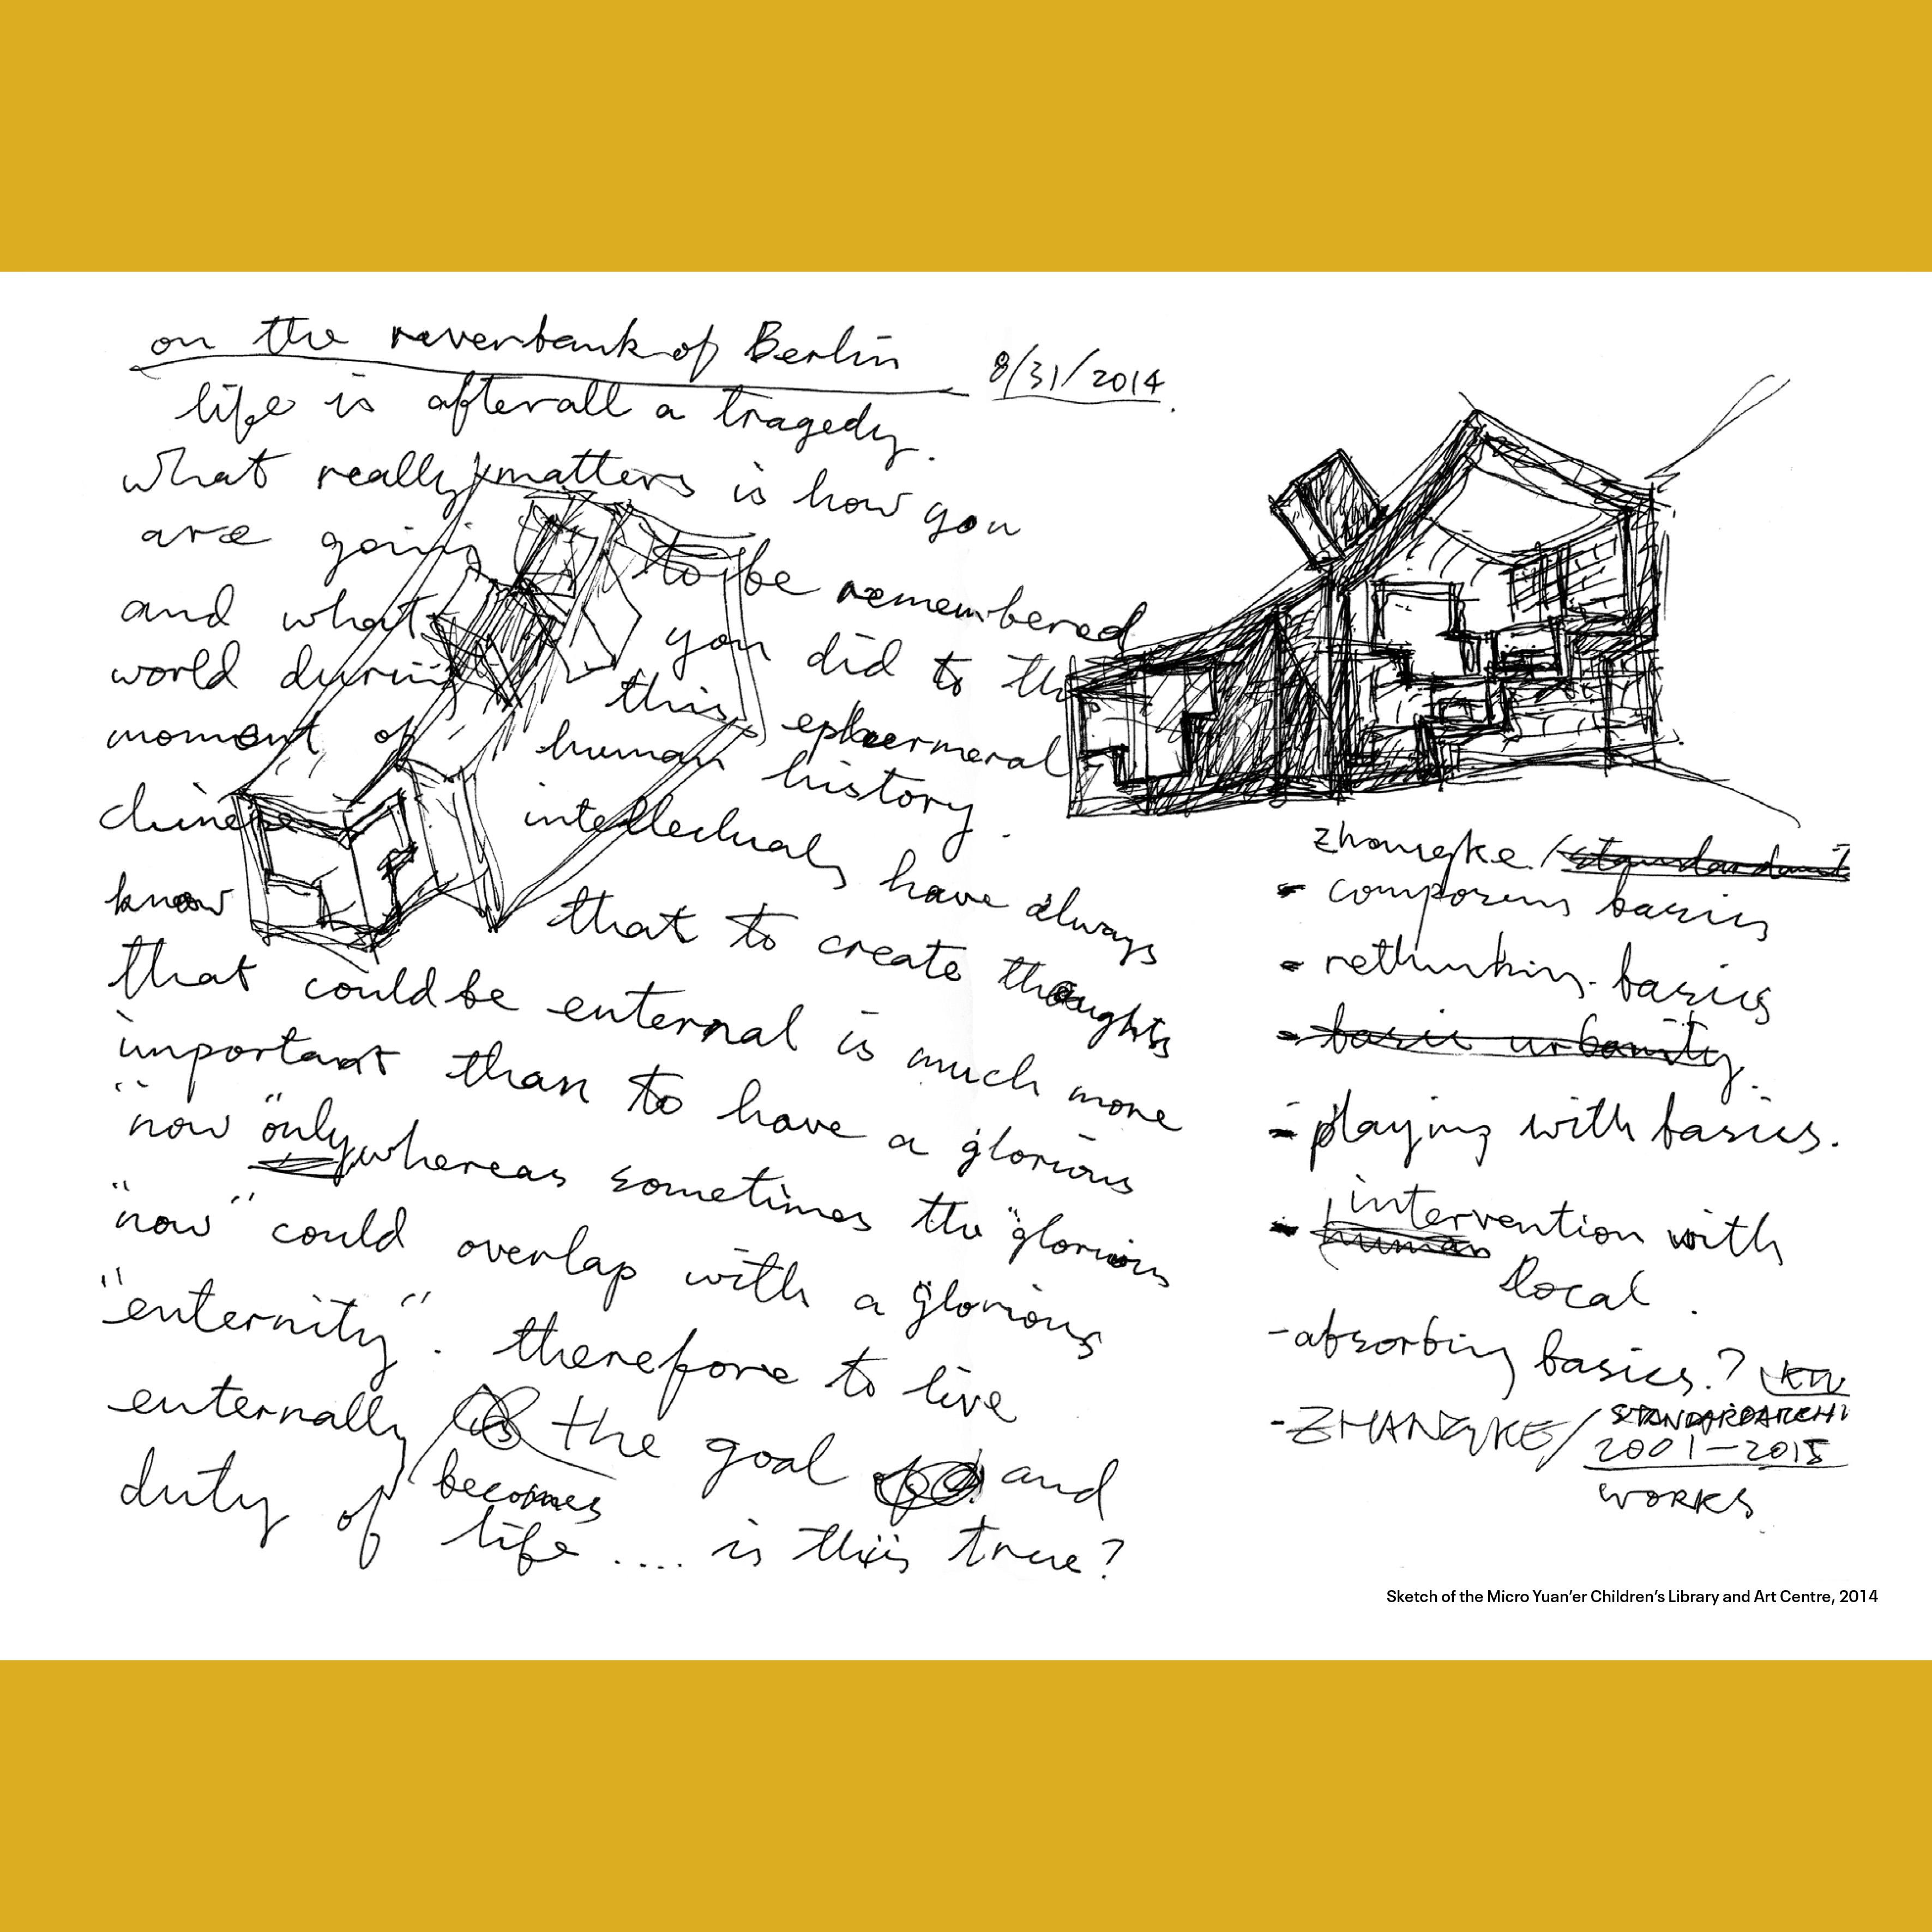 on the reverbank of Berlin 8/31/2014.
life is afterall a tragedy.
what really matters is how you
are going to be remembered
and what you did to the
world during this ephermeral
moment of human history.
chinese intellectuals have always
know that to create thoughts
that could be enternal is much more
important than to have a glorious
"now" only whereas sometimes the "glorious
"now" could overlap with a glorious
"enternity". therefore to live
enternally becomes the goal and
duty of life .... is this true?
zhangke / standard
- composing basics
- rethinking basics
- basic urbanity.
- playing with basics.
- human intervention with
local.
- absorbing basics.?
- ZHANGKE / STANDARDARCHI
2001-2015
WORKS
Sketch of the Micro Yuan'er Children's Library and Art Centre, 2014